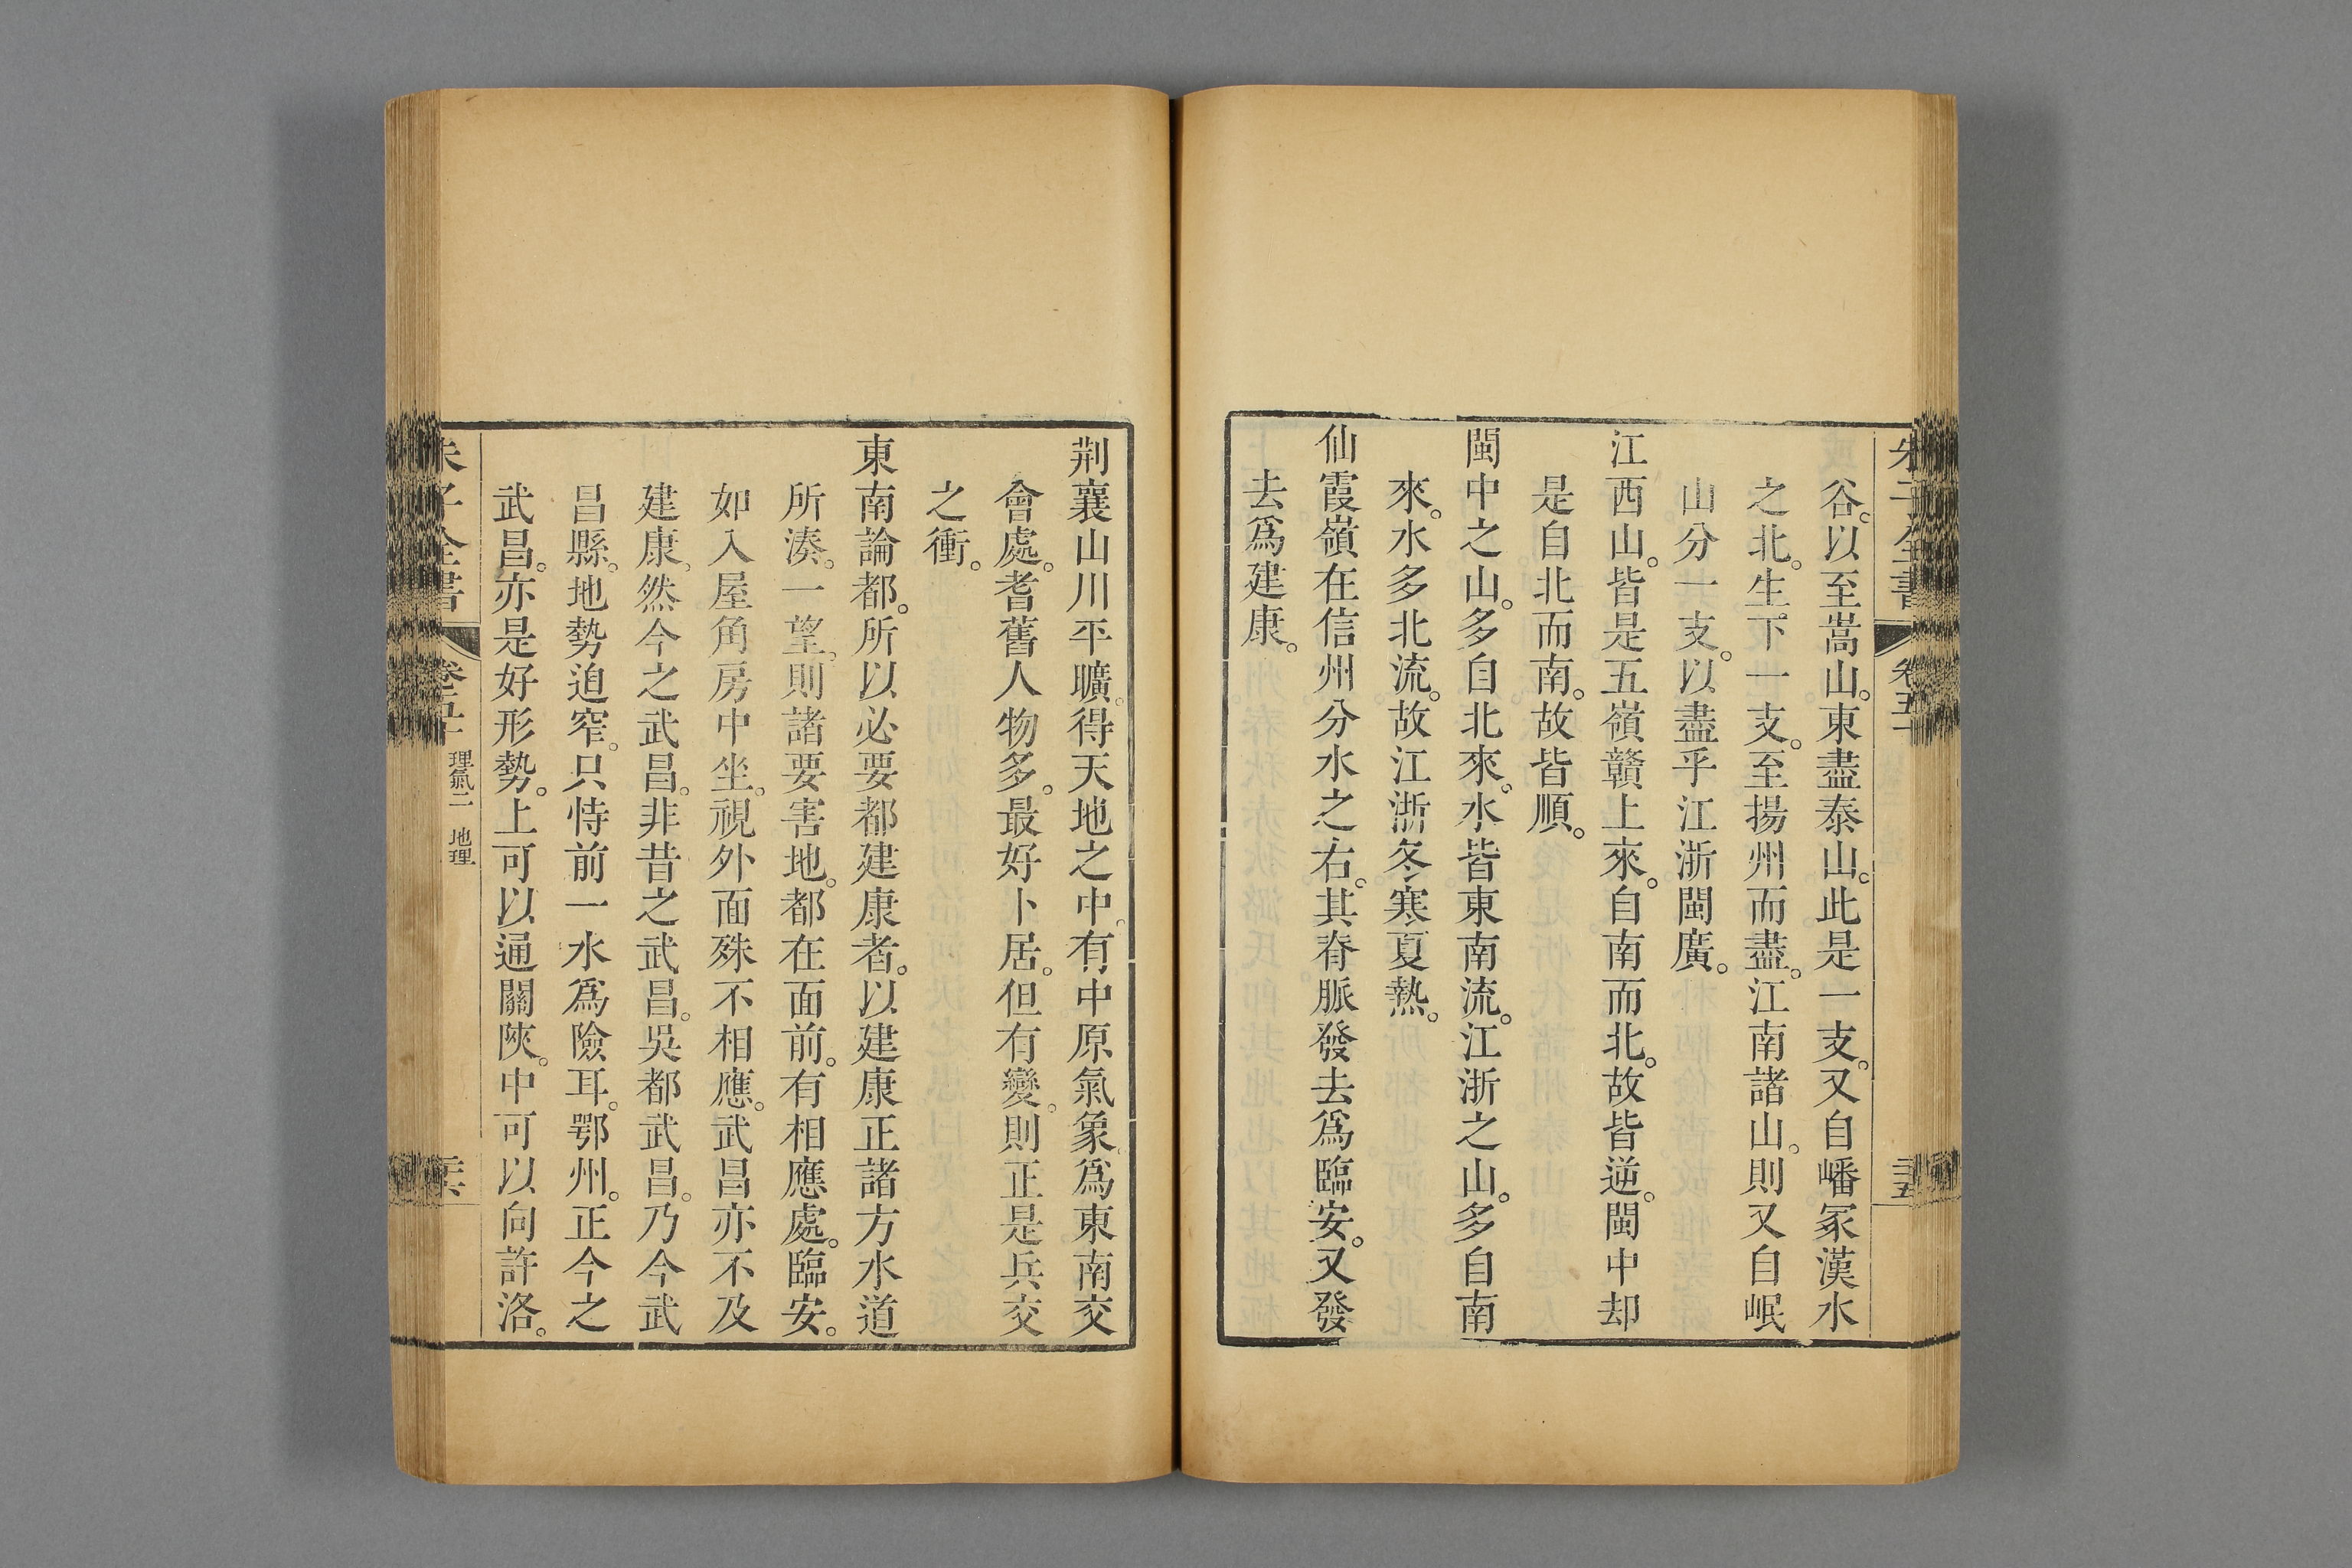 谷。以至嵩山。東盡泰山。此是一支。又自嶓冢漢水
之北。生下一支。至揚州而盡。江南諸山。則又自岷
山分一支。以盡乎江浙閩廣。
江西山。皆是五嶺贛上來。自南而北。故皆逆。閩中却
是自北而南。故皆順。
閩中之山。多自北來。水皆東南流。江浙之山。多自南
來。水多北流。故江浙冬寒夏熱。
仙霞嶺在信州分水之右。其脊脈發去爲臨安。又發
去爲建康。
荆襄山川平曠。得天地之中。有中原氣象。爲東南交
會處。耆舊人物多。最好卜居。但有變。則正是兵交
之衝。
東南論都。所以必要都建康者。以建康正諸方水道
所湊。一望。則諸要害地。都在面前。有相應處。臨安。
如入屋角房中坐。視外面殊不相應。武昌亦不及
建康。然今之武昌。非昔之武昌。吳都武昌。乃今武
昌縣。地勢迫窄。只恃前一水爲險耳。鄂州。正今之
武昌。亦是好形勢。上可以通關陝。中可以向許洛。
朱子全書 卷五十 理氣二 地理